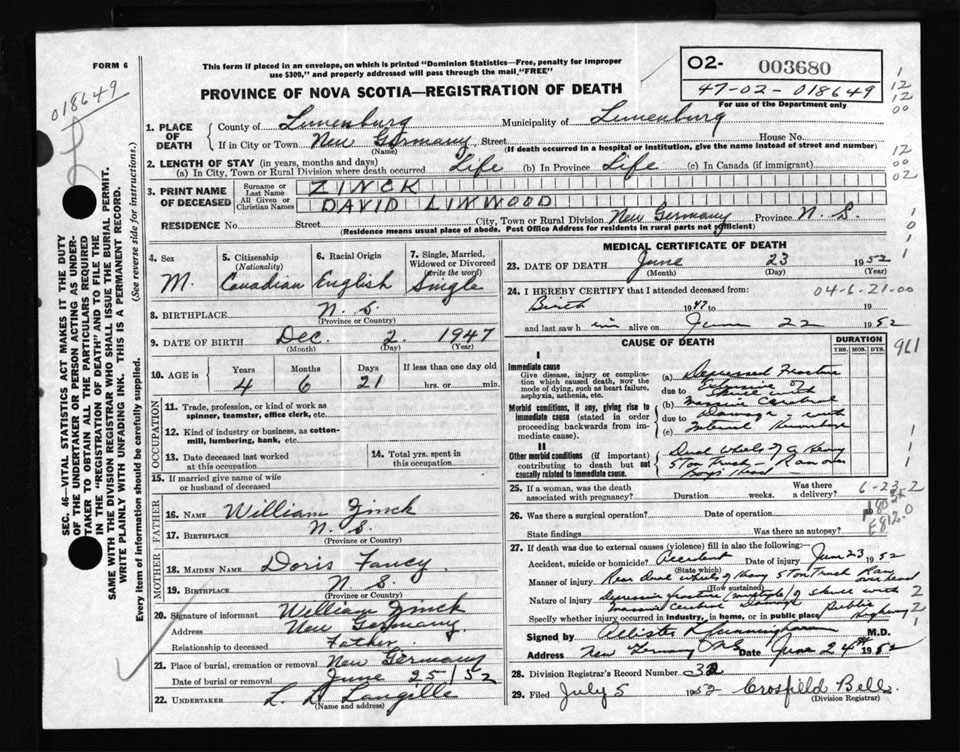 FORM 6
018649
This form if placed in an envelope, on which is printed "Dominion Statistics—Free, penalty for improper
use $300," and properly addressed will pass through the mail, "FREE"
PROVINCE OF NOVA SCOTIA—REGISTRATION OF DEATH
02- 003680
47-02-018649
For use of the Department only
1. PLACE OF DEATH { County of Lunenburg Municipality of Lunenburg
If in City or Town New Germany, Street House No.
(Name) (If death occurred in a hospital or institution, give the name instead of street and number)
2. LENGTH OF STAY (in years, months and days)
(a) In City, Town or Rural Division where death occurred Life (b) In Province Life (c) In Canada (if immigrant)
3. PRINT NAME OF DECEASED { Surname or Last Name ZINCK
All Given or Christian Names DAVID LINWOOD
RESIDENCE No. Street City, Town or Rural Division New Germany Province N. S.
(Residence means usual place of abode. Post Office Address for residents in rural parts not sufficient)
4. Sex M.
5. Citizenship (Nationality) Canadian
6. Racial Origin English
7. Single, Married, Widowed or Divorced (write the word) Single
8. BIRTHPLACE N. S.
(Province or Country)
9. DATE OF BIRTH Dec. 2 1947
(Month) (Day) (Year)
10. AGE in { Years Months Days If less than one day old
4 6 21 hrs. or min.
OCCUPATION
11. Trade, profession, or kind of work as
spinner, teamster, office clerk, etc.
12. Kind of industry or business, as cotton-
mill, lumbering, bank, etc.
13. Date deceased last worked
at this occupation
14. Total yrs. spent in
this occupation
15. If married give name of wife
or husband of deceased
FATHER
16. NAME William Zinck
17. BIRTHPLACE N. S.
(Province or Country)
MOTHER
18. MAIDEN NAME Doris Fancy
19. BIRTHPLACE N S.
(Province or Country)
20. Signature of informant William Zinck
Address New Germany
Relationship to deceased Father
21. Place of burial, cremation or removal New Germany
Date of burial or removal June 25/52
22. UNDERTAKER L. D Langille
(Name and address)
MEDICAL CERTIFICATE OF DEATH
23. DATE OF DEATH June 23 1952
(Month) (Day) (Year)
24. I HEREBY CERTIFY that I attended deceased from: 04-6-21-00
Birth 1947 to 19
and last saw him alive on June 22 1952
CAUSE OF DEATH
DURATION
YRS. MOS. DYS.
961
I
Immediate cause
Give disease, injury or complica-
tion which caused death, NOT the
mode of dying, such as heart failure,
asphyxia, asthenia, etc.
(a) Depressed Fracture
due to
Morbid conditions, if any, giving rise to
immediate cause (stated in order
proceeding backwards from im-
mediate cause).
(b) Massive Cerebral
due to Damage - with
(c) Internal Hemorrhage
II
Other morbid conditions (if important)
contributing to death but not
causally related to immediate cause.
Dual Wheels of a Heavy
5 Ton Truck - Ran over
Boys Head
25. If a woman, was the death
associated with pregnancy? Duration weeks. Was there
a delivery?
6-23-2
26. Was there a surgical operation? Date of operation
State findings Was there an autopsy?
E812.0
27. If death was due to external causes (violence) fill in also the following:—
Accident, suicide or homicide? Accident Date of injury June 23 1952
(State which)
Manner of injury Rear dual wheels of Heavy 5 Ton Truck Ran over head
(How sustained)
Nature of injury Depressed fracture (multiple) of skull with
massive Cerebral Damage
Specify whether injury occurred in industry, in home, or in public place Public Highway
Signed by Allister R Cunningham M.D.
Address New Germany N.S. Date June 24th 1952
28. Division Registrar's Record Number 32
29. Filed July 5 1952 Crosfield Bell
(Division Registrar)
SEC. 46—VITAL STATISTICS ACT MAKES IT THE DUTY
OF THE UNDERTAKER OR PERSON ACTING AS UNDER-
TAKER TO OBTAIN ALL THE PARTICULARS REQUIRED
IN THE "REGISTRATION OF DEATH" AND TO FILE THE
SAME WITH THE DIVISION REGISTRAR WHO SHALL ISSUE THE BURIAL PERMIT.
WRITE PLAINLY WITH UNFADING INK. THIS IS A PERMANENT RECORD.
Every item of information should be carefully supplied. (See reverse side for instructions.)